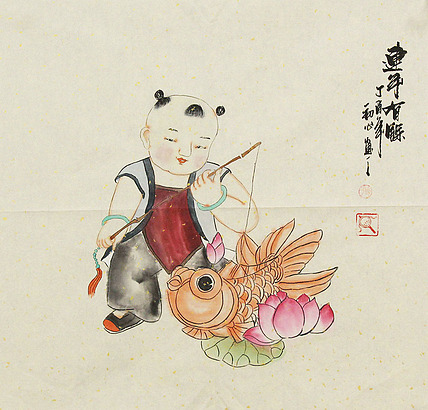 連年有餘
丁酉年
初心